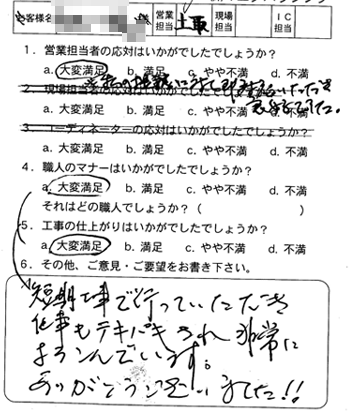 お客様名 営業担当 土取 現場担当 IC担当
1. 営業担当者の応対はいかがでしたでしょうか?
a. 大変満足 b. 満足 c. やや不満 d. 不満
2. 現場担当者の応対はいかがでしたでしょうか?
a. 大変満足 b. 満足 c. やや不満 d. 不満
3. コーディネーターの応対はいかがでしたでしょうか?
a. 大変満足 b. 満足 c. やや不満 d. 不満
4. 職人のマナーはいかがでしたでしょうか?
a. 大変満足 b. 満足 c. やや不満 d. 不満
それはどの職人でしょうか?( )
5. 工事の仕上がりはいかがでしたでしょうか?
a. 大変満足 b. 満足 c. やや不満 d. 不満
6. その他、ご意見・ご要望をお書き下さい。
短期工事で行っていただき
仕事もテキパキされ 非常に
よろこんでいます。
ありがとうございました!!